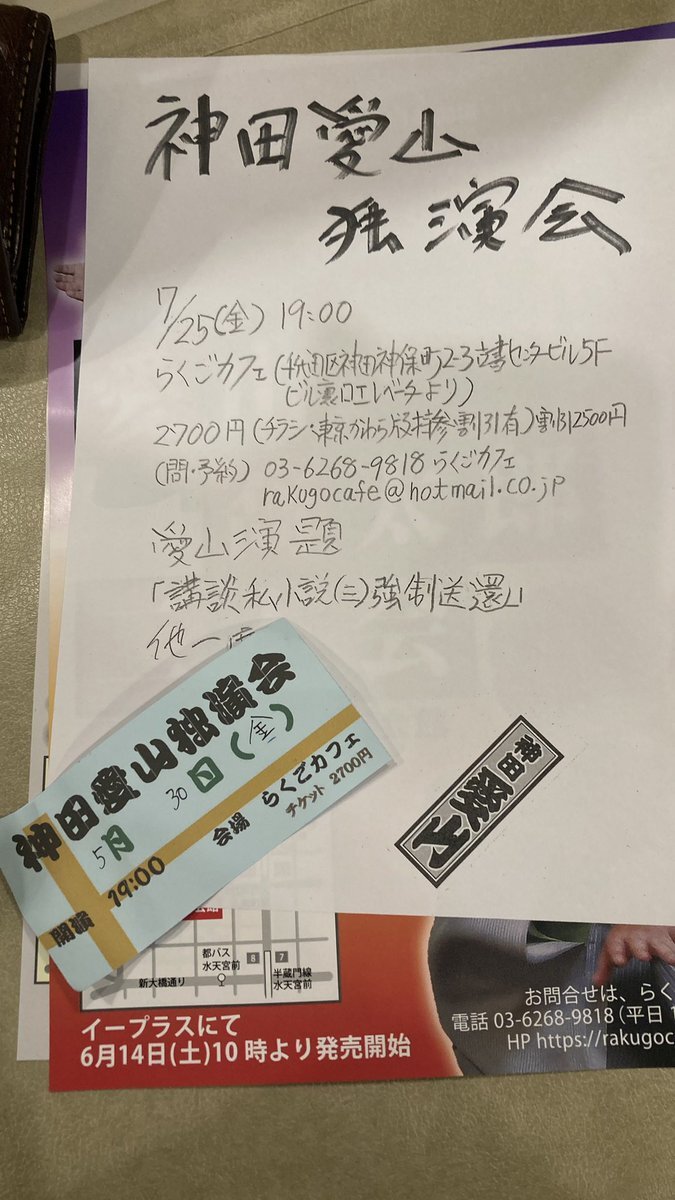 神田愛山
独演会
7/25(金) 19:00
らくごカフェ(千代田区神田神保町2-3古書センタービル5F
ビル裏口エレベーターより)
2700円(チラシ・東京かわら版持参割引有)割引2500円
(問・予約) 03-6268-9818 らくごカフェ
rakugocafe@hotmail.co.jp
愛山演題
「講談私小説(三)強制送還」
他一席
神田愛山独演会
5月 30日(金)
開演 19:00
会場 らくごカフェ
チケット 2700円
神田愛山
都バス
水天宮前
8 7
新大橋通り
半蔵門線
水天宮前
イープラスにて
6月14日(土)10時より発売開始
お問合せは、らく
電話 03-6268-9818(平日 1
HP https://rakugoc